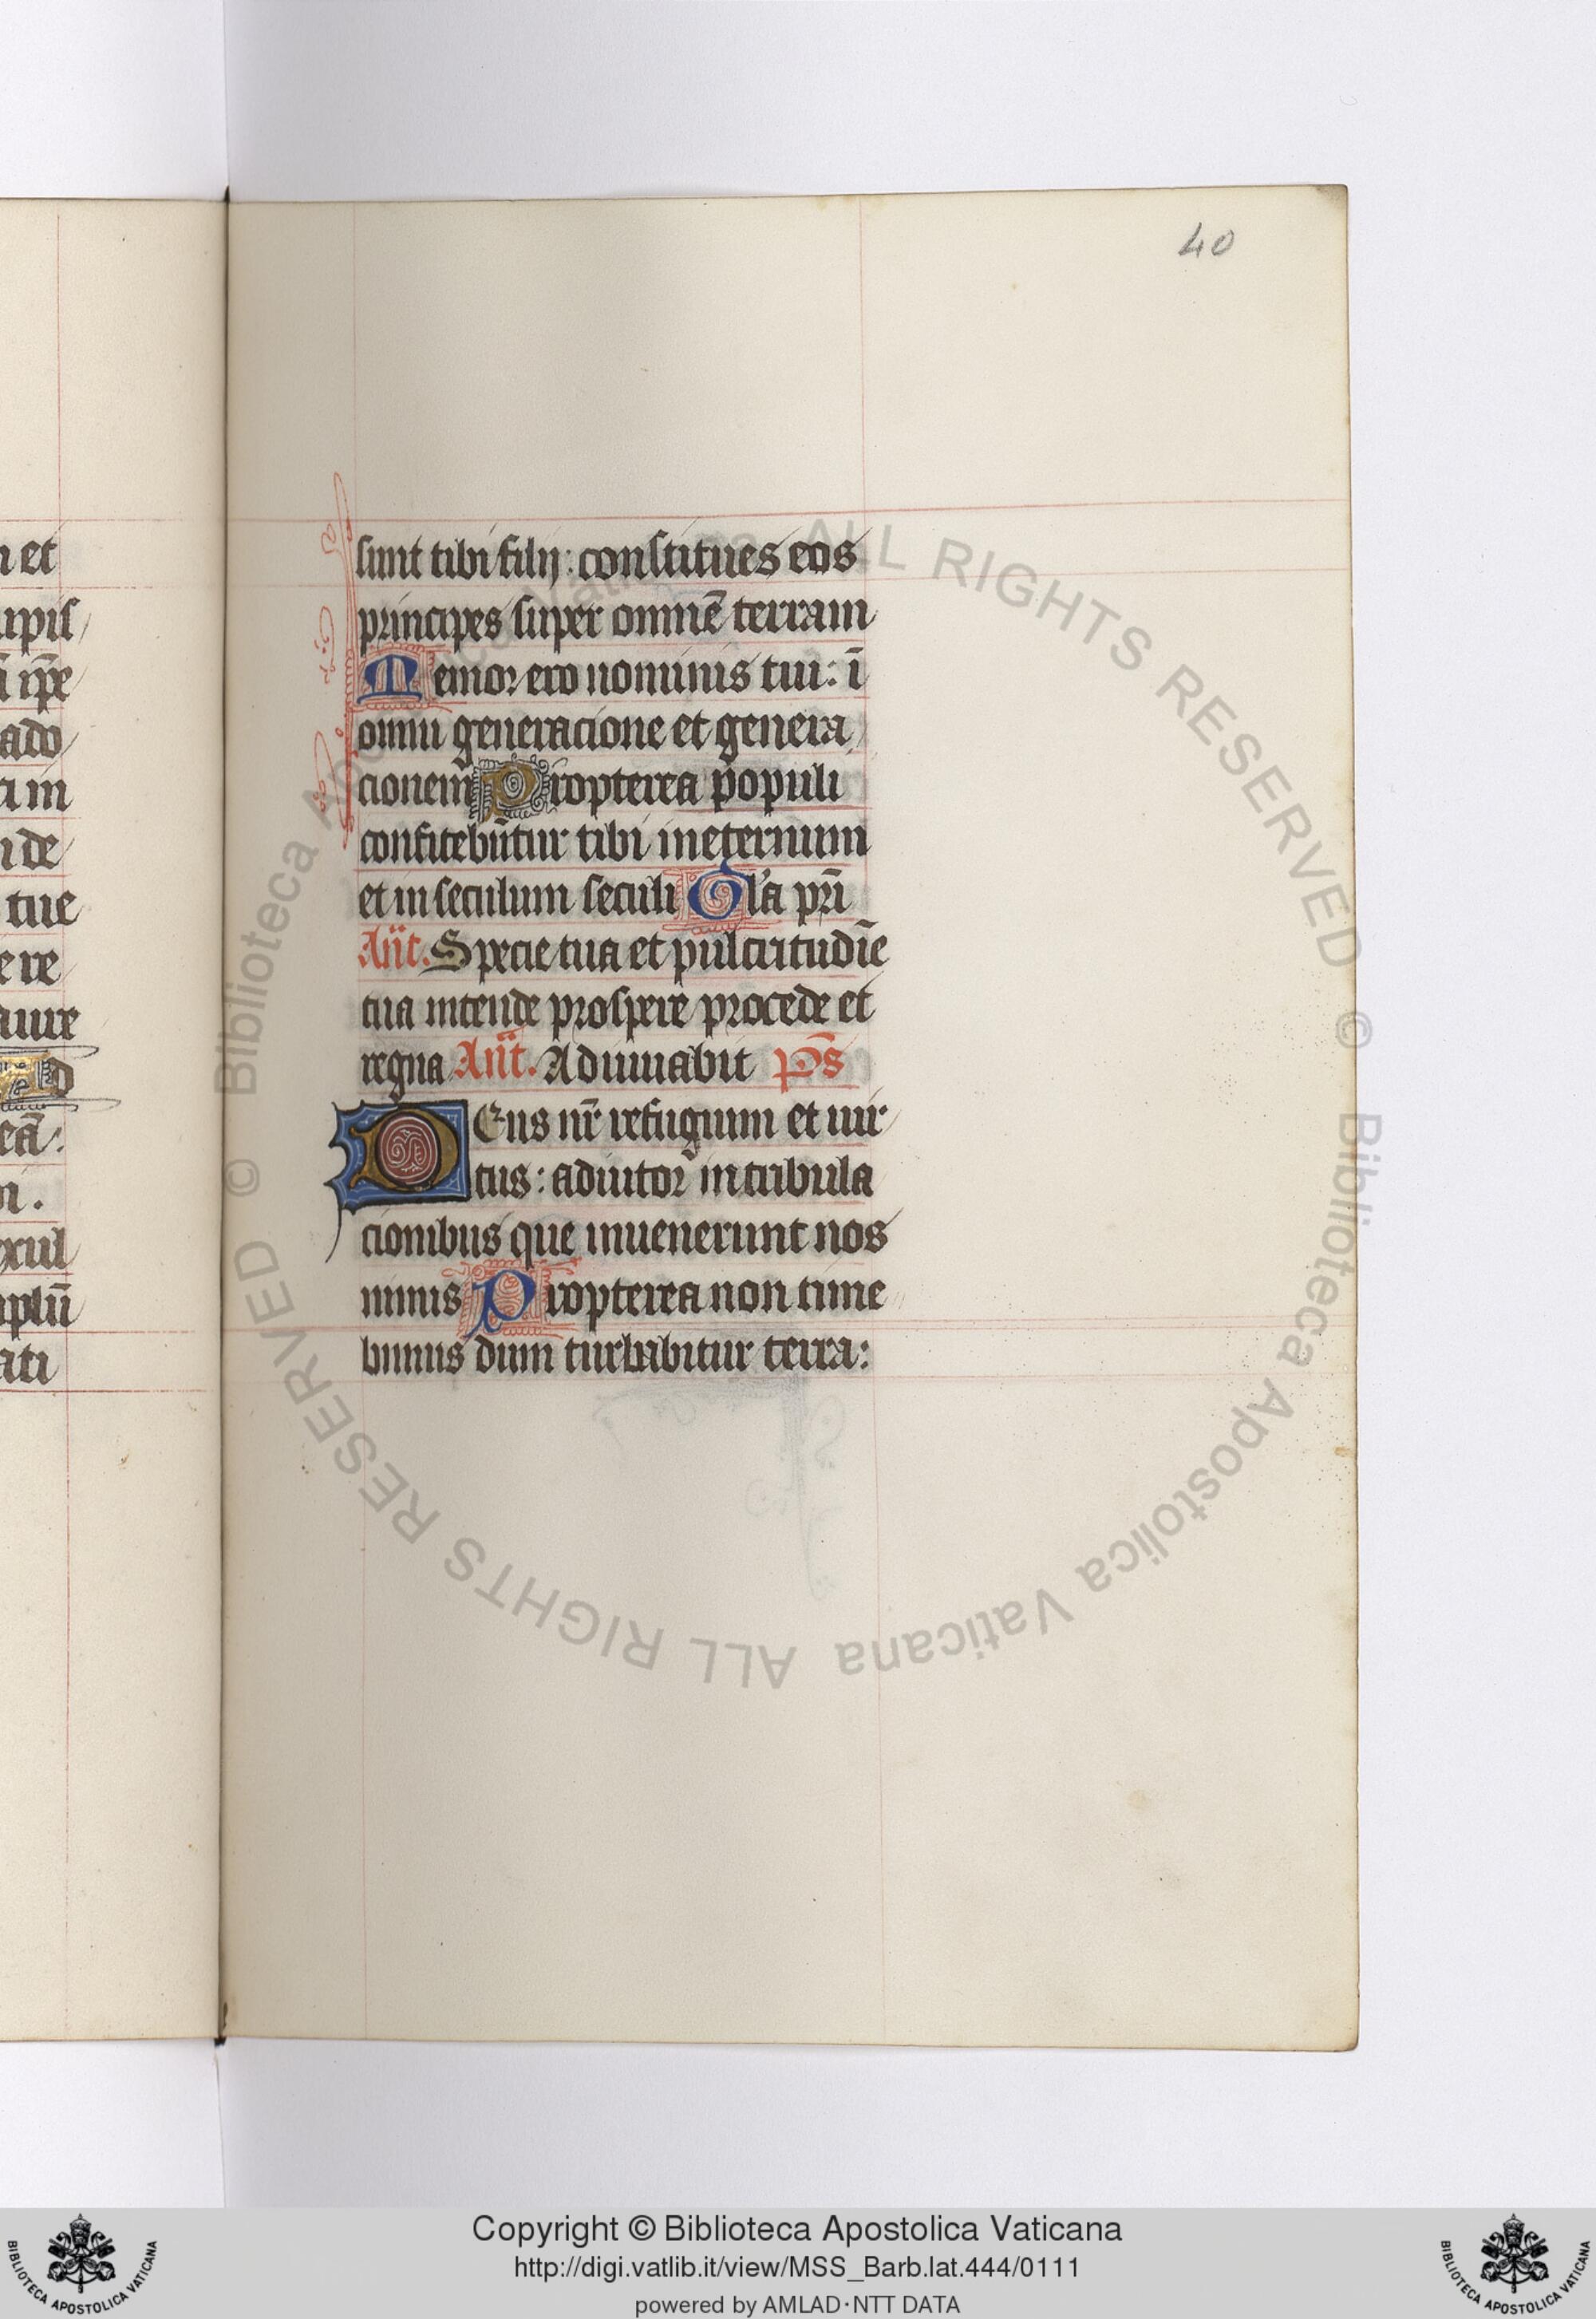 40
n et
upis
ip̄e
ado
in
n de
tue
ere
eā:
exul
ati
sunt tibi filij: constitues eos
principes super omnē terram
Memor ero nominis tui: ī
omni generacione et genera
cionem Propterea populi
confitebūtur tibi in eternum
et in seculum seculi Gl'a pr̄i
Añt. Specie tua et pulcritudīe
tua intende prospere procede et
regna Añt. Adiuuabit p̄s
Deus nr̄ refugium et uir
tus: adiutor in tribula
cionibus que inuenerunt nos
nimis Propterea non time
bimus dum turbabitur terra:
© Biblioteca Apostolica Vaticana ALL RIGHTS RESERVED
© Biblioteca Apostolica Vaticana ALL RIGHTS RESERVED
BIBLIOTECA APOSTOLICA VATICANA
Copyright © Biblioteca Apostolica Vaticana
http://digi.vatlib.it/view/MSS_Barb.lat.444/0111
powered by AMLAD·NTT DATA
BIBLIOTECA APOSTOLICA VATICANA